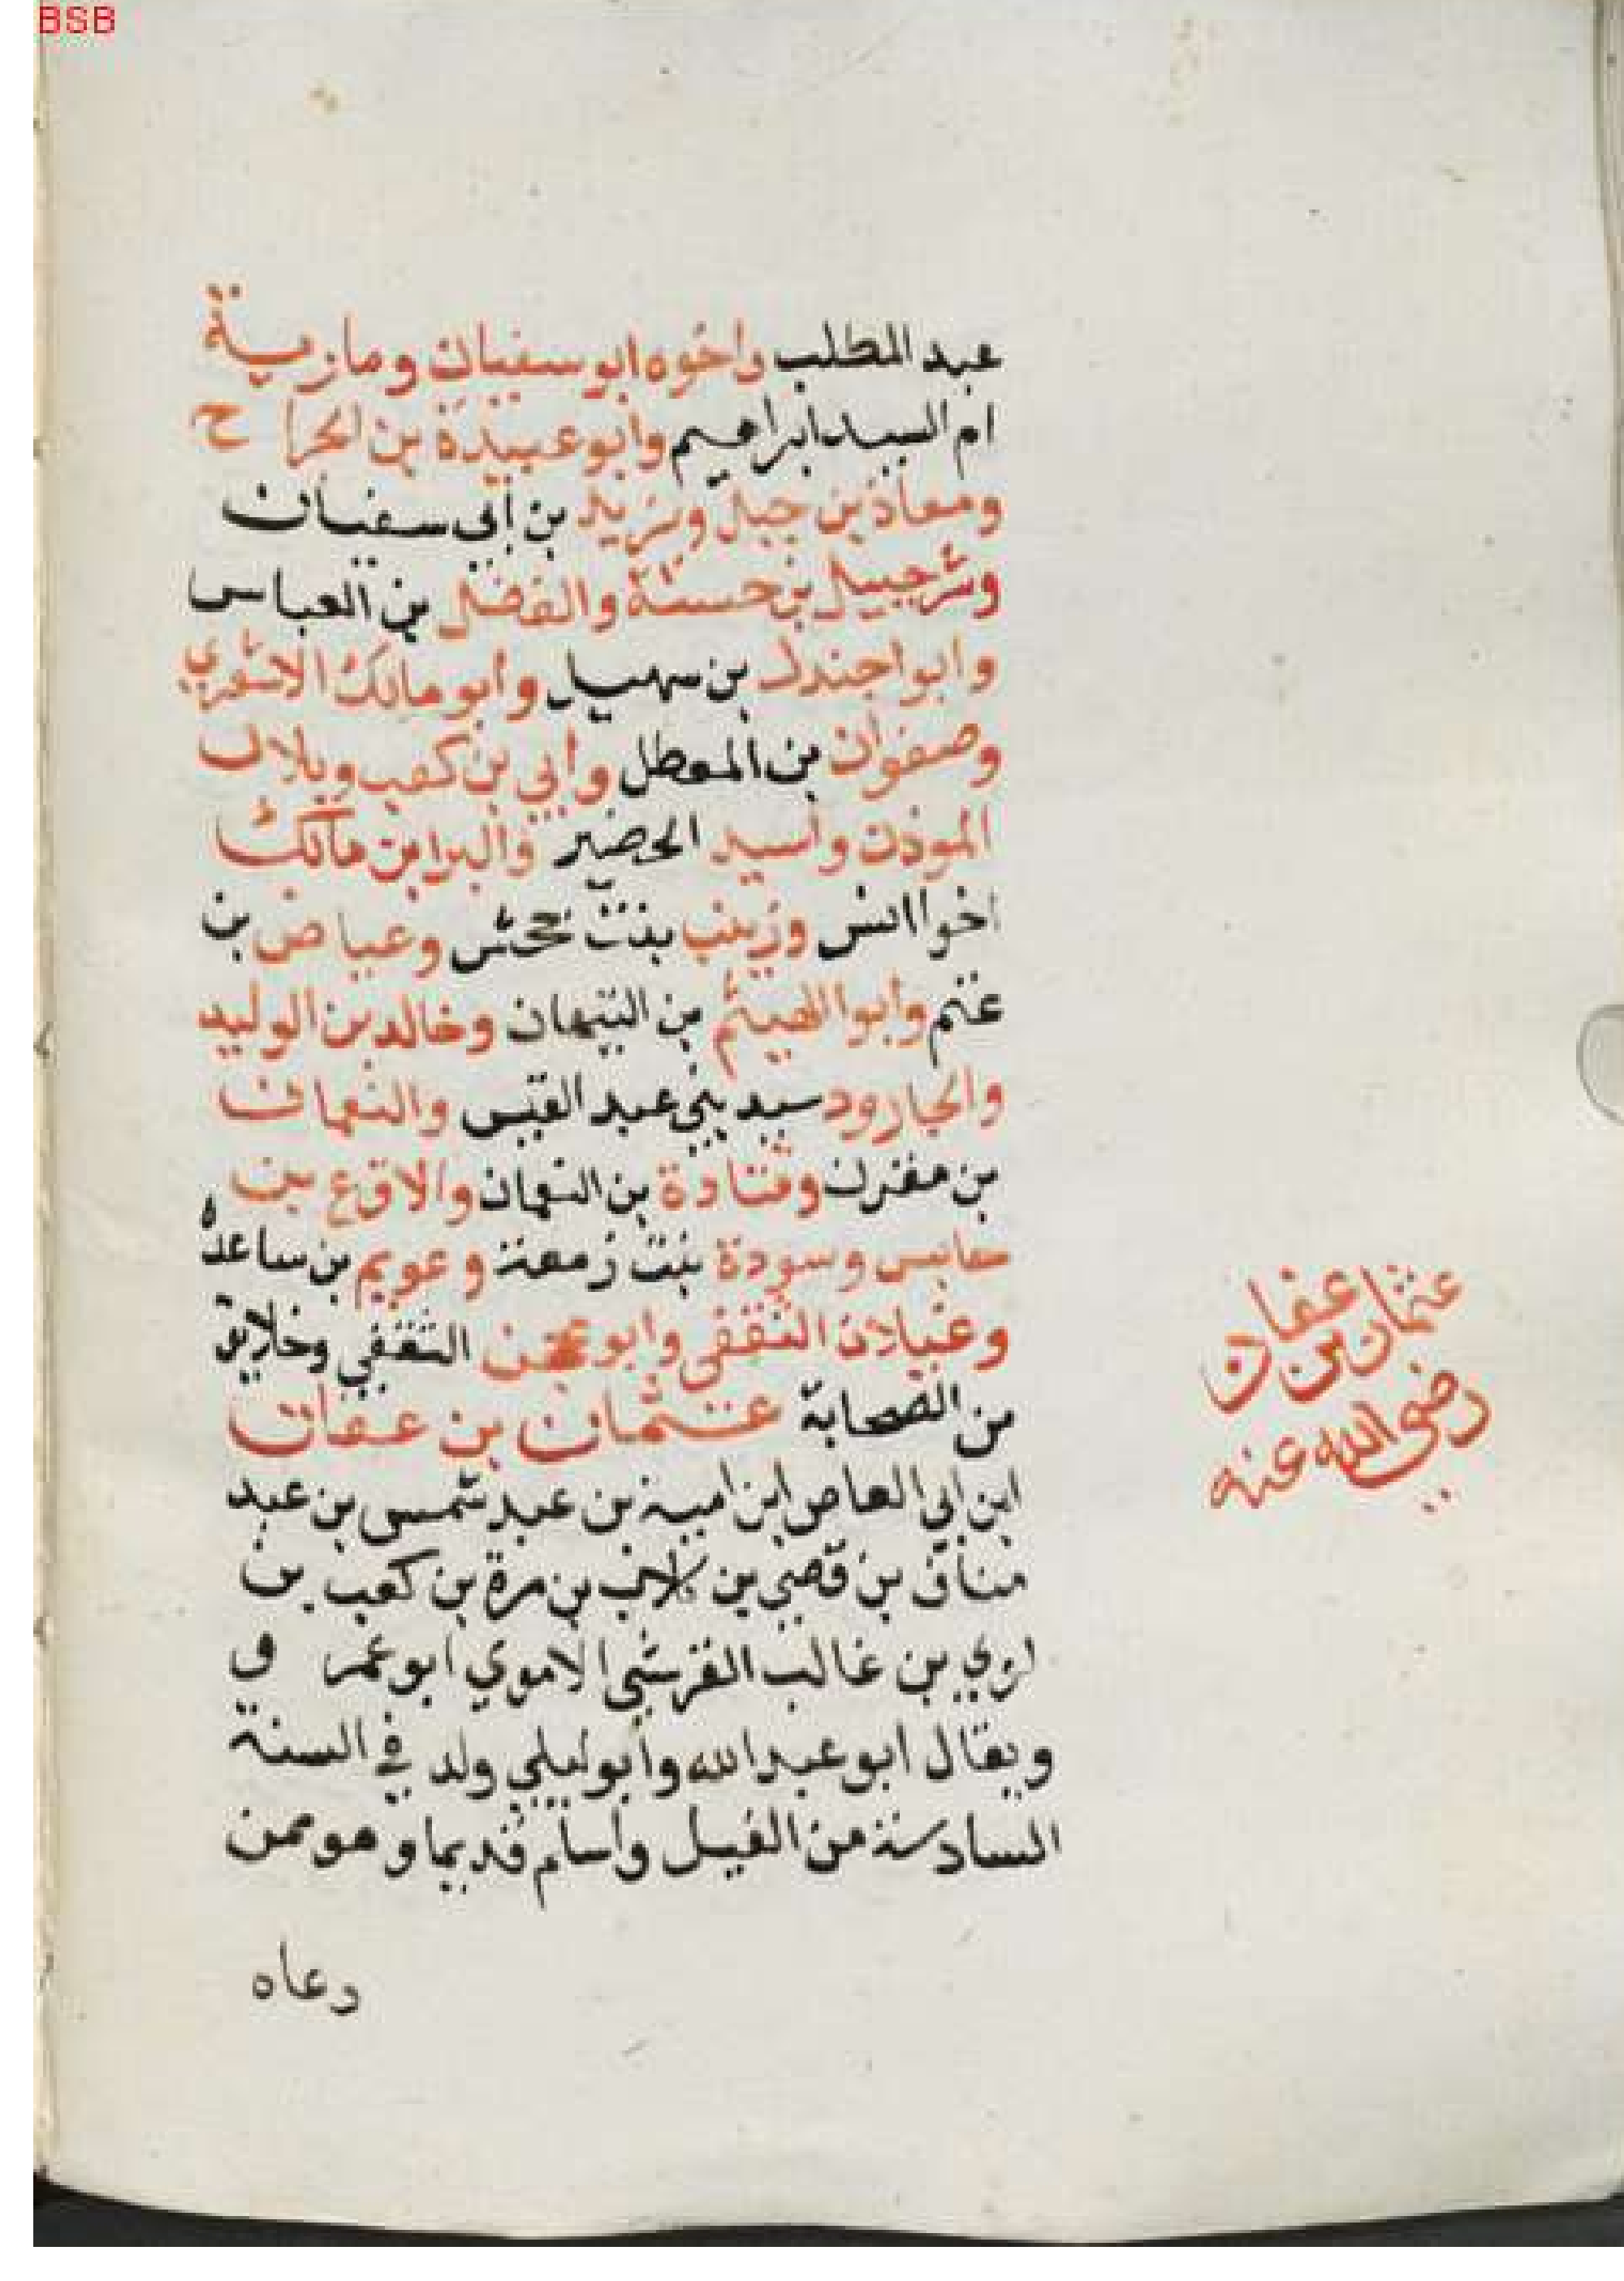 BSB
عبد المطلب واخوه ابو سفيان ومارية
ام السيد ابراهيم وابو عبيدة بن الجراح
ومعاذ بن جبل ويزيد بن ابي سفيان
وشرحبيل بن حسنة والفضل بن العباس
وابوا جندل بن سهيل وابو مالك الاشعري
وصفوان بن المعطل وابي بن كعب وبلال
الموذن واسيد الحضير والبرا بن مالك
اخوا انس وزينب بنت جحش وعياض بن
غنم وابوا الهيثم بن التيهان وخالد بن الوليد
والجارود سيد بني عبد القيس والنعمان
بن مقرن وقتادة بن النعمان والاقرع بن
حابس وسودة بنت زمعة وعويم بن ساعده
وغيلان الثقفي وابو محجن الثقفي وخلايق
من الصحابة عثمان بن عفان
ابن ابي العاص ابن امية بن عبد شمس بن عبد
مناف بن قصي بن كلاب بن مرة بن كعب بن
لوي بن غالب القرشي الاموي ابو عمرو
ويقال ابو عبد الله وابو ليلي ولد في السنة
السادسة من الفيل واسلم قديما وهو ممن
دعاه
عثمان بن عفان
رضي الله عنه